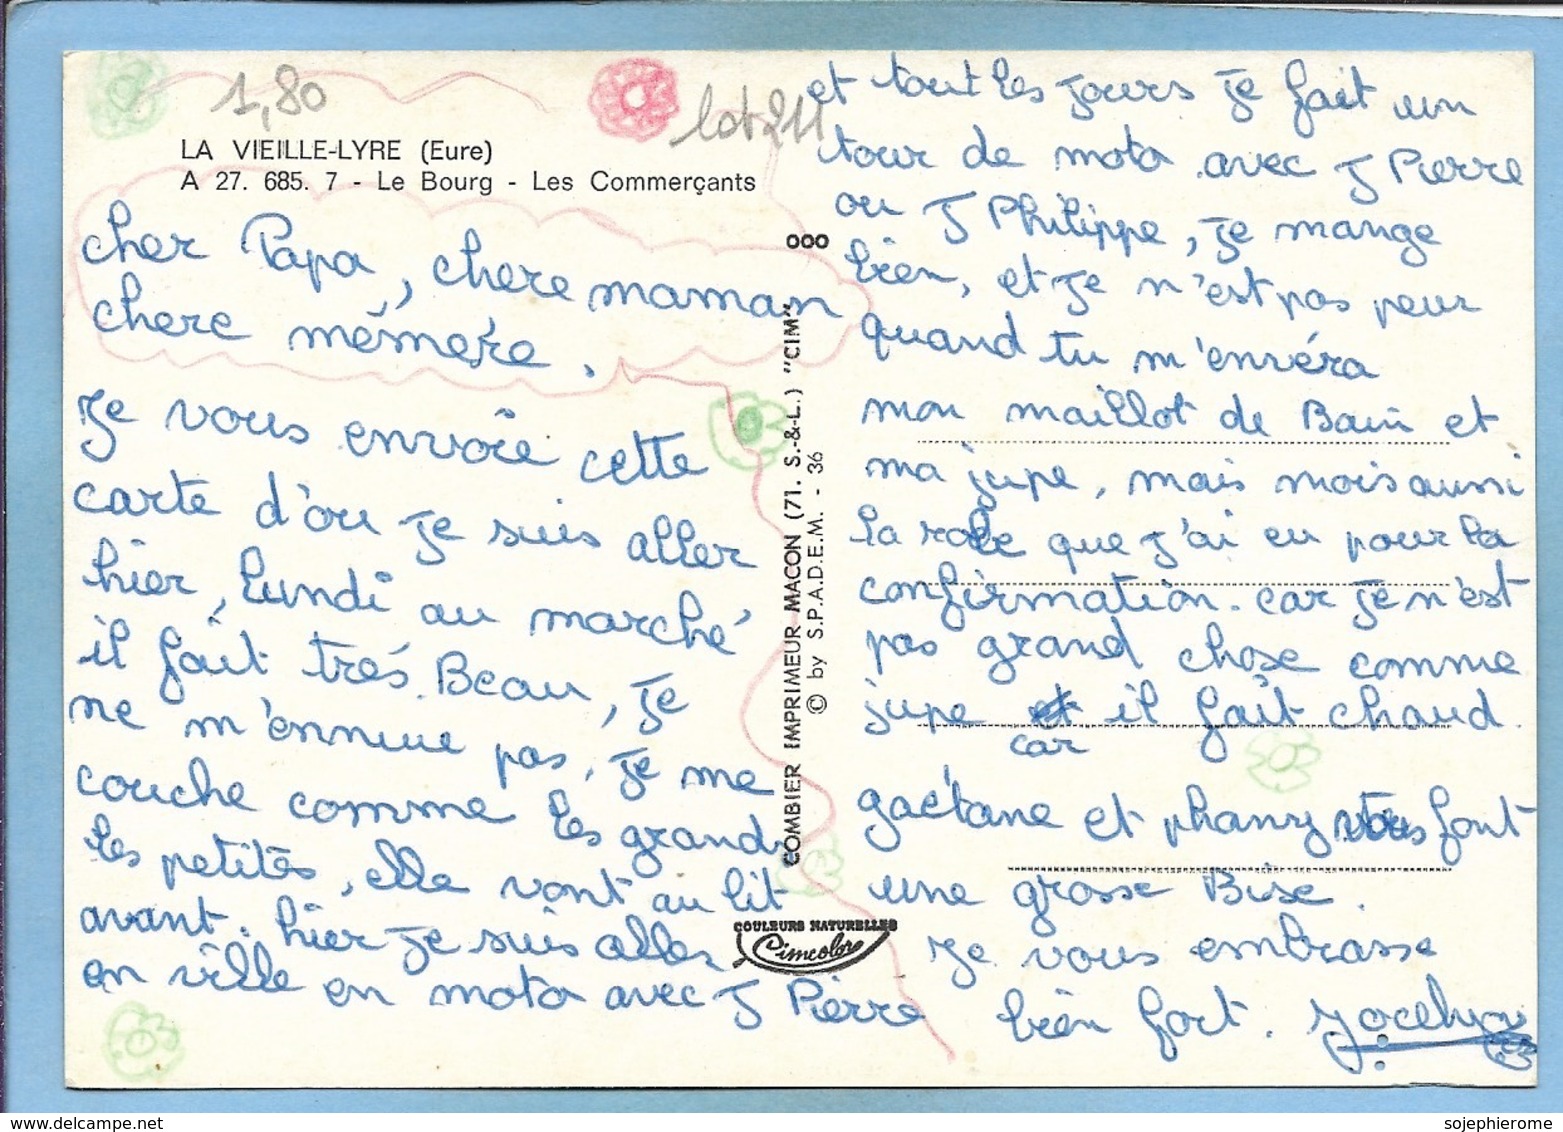 1,80
lot 211
LA VIEILLE-LYRE (Eure)
A 27. 685. 7 - Le Bourg - Les Commerçants
cher Papa, chere maman
chere mémére,
Je vous envoie cette
carte d'ou je suis aller
hier, lundi au marché
il fait trés Beau, je
ne m'ennuie pas, je me
couche comme les grands
les petites, elle vont au lit
avant. hier je suis aller
en ville en moto avec J Pierre
ooo
COMBIER IMPRIMEUR MACON (71. S.-&-L.) "CIM"
© by S.P.A.D.E.M. - 36
COULEURS NATURELLES
Cimcolor
et tout les jours je fait un
tour de moto avec J Pierre
ou J Philippe, je mange
bien, et je n'est pas peur
quand tu m'envéra
mon maillot de Bain et
ma jupe, mais mois aussi
la robe que j'ai eu pour la
confirmation. car je n'est
pas grand chose comme
jupe et il fait chaud.
car
gaétane et phany vous font
une grosse Bise.
Je vous embrasse
bien fort. Jocelyne
sojephierome